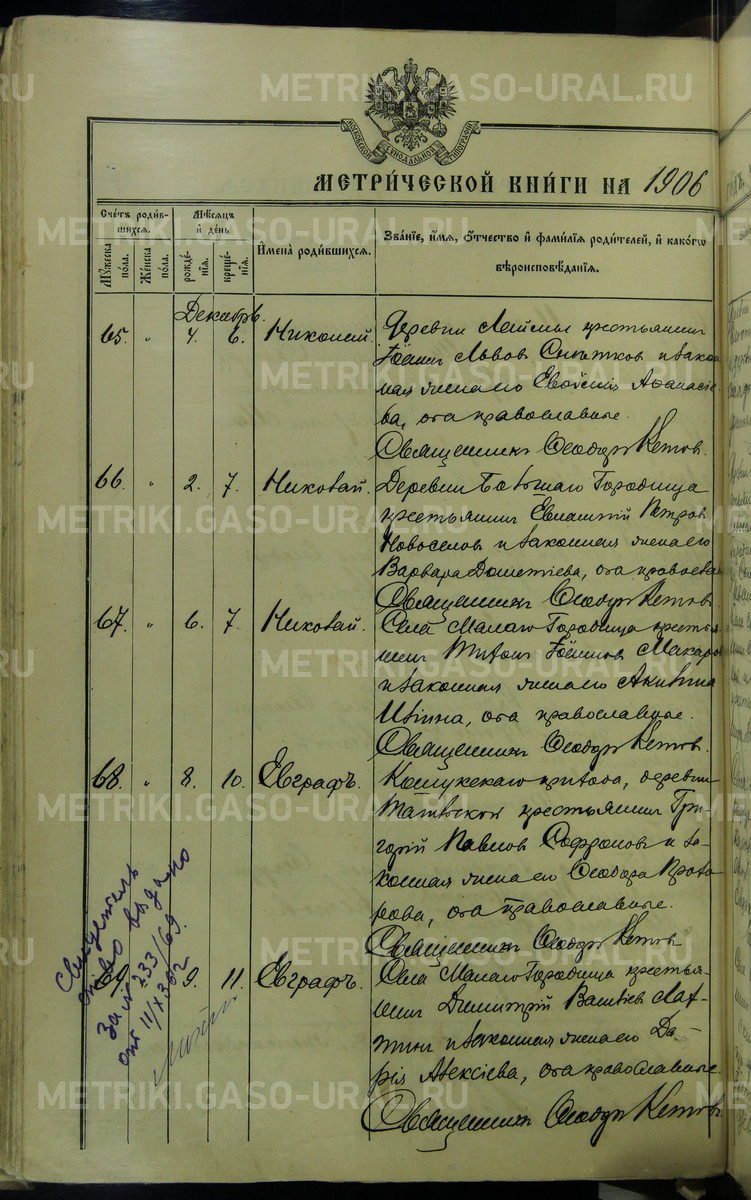 METRIKI.GASO-URAL.RU
МОСКОВСКОЙ СѴНОДАЛЬНОЙ ТИПОГРАФІИ
МЕТРИ́ЧЕСКОЙ КНИ́ГИ НА 1906
Сче́тъ роди́в-
шихся.
Му́жеска
пола.
Же́нска
пола.
Мѣ́сяцъ
и́ де́нь
рожде́-
нія.
креще́-
нія.
И́мена̀ роди́вшихся.
Зва́ніе, и́мя, ѻ́тчество и҆ фами́лія роди́телей, и҆ како́гѡ
вѣроисповѣ́данія.
Декабрь.
65. " 4. 6. Николай.
Деревни крестьянинъ
Іоаннъ Львовъ Снѣтковъ и закон
ная жена его Евѳимія Аѳанасіе
ва, оба православные.
Священникъ Ѳеодоръ Кетовъ.
66. " 2. 7. Николай.
Деревни Большаго Городища
крестьянинъ Петровъ
Новоселовъ и законная жена его
Варвара Дометіева, оба правосла
Священникъ Ѳеодоръ Кетовъ
67. " 6. 7. Николай.
Села Малаго Городища крестья
нинъ Титъ Іоанновъ Макаро
и законная жена его Акилина
оба православные.
Священникъ Ѳеодоръ Кетовъ.
68. " 8. 10. Евграфъ.
Кошукскаго прихода, деревни
крестьянинъ Гри-
горій Павловъ Софроновъ и за-
конная жена его Ѳеодора Прохо
рова, оба православные.
Священникъ Ѳеодоръ Кетовъ
69. 9. 11. Евграфъ.
Села Малаго Городища крестья-
нинъ Димитрій Васильевъ Лап-
тинъ и законная жена его Да-
рія Алексіева, оба православные.
Священникъ Ѳеодоръ Кетовъ
Свидетель
ство выдано
За № 233/69
от 11/X 30 г.